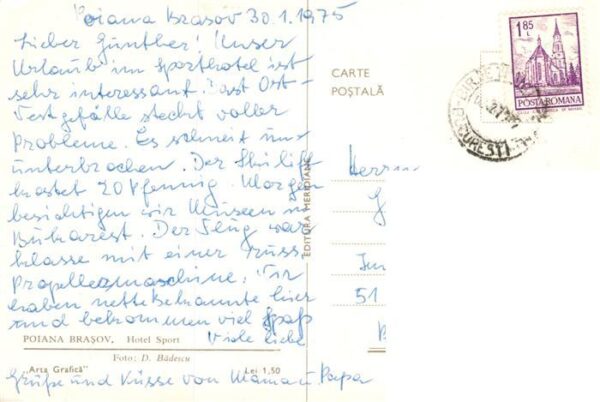 Poiana Brasov 30.1.1975
Lieber Günther! Unser
Urlaub im Sporthotel ist
sehr interessant. Das Ost-
Westgefälle steckt voller
Probleme. Es schneit un-
unterbrochen. Der Skilift
kostet 20 Pfennig. Morgen
besichtigen wir Museen in
Bukarest. Der Flug war
klasse mit einer russ.
Propellermaschine. Wir
haben nette Bekannte hier
und bekommen viel Spaß
Viele liebe
Grüße und Küsse von Mama u. Papa
POIANA BRAŞOV, Hotel Sport
Foto: D. Bădescu
"Arta Grafică" Lei 1,50
EDITURA MERIDIANE
CARTE
POŞTALĂ
1,85
L
POSTA ROMANA
BUCUREŞTI
Herrn
G
51